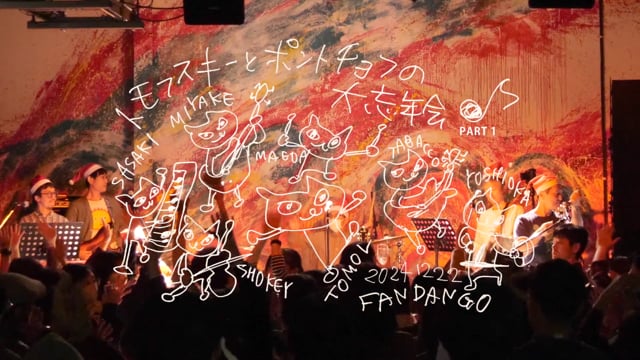 トモフスキーとポントチョフの
大忘年会
PART 1
SASAKI
MIYAKE
MAEDA
YOSHIOKA
SHOKEY
2024 12.22
FANDANGO